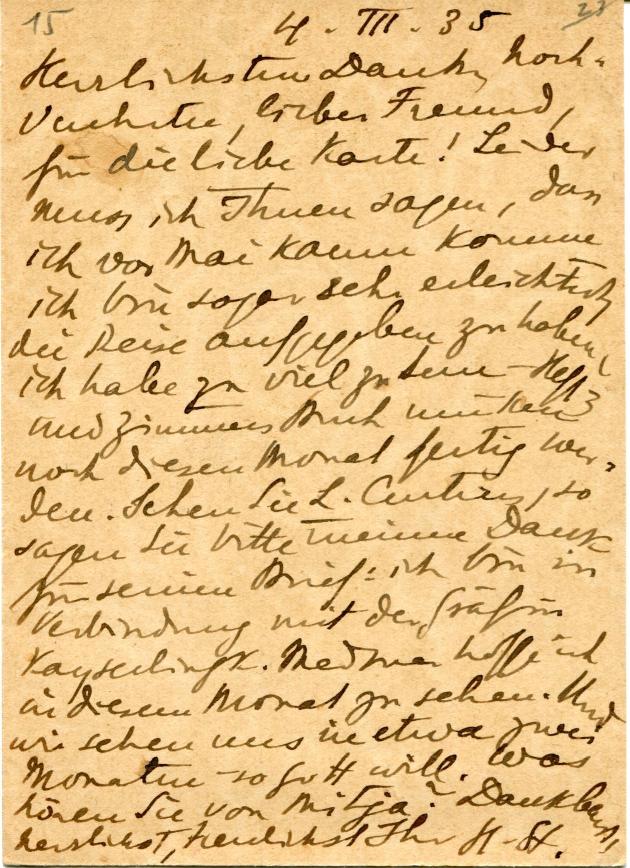 15
23
4. III. 35
Herzlichsten Dank, hoch-
verehrter, lieber Freund,
für die liebe Karte! Leider
muss ich Ihnen sagen, dass
ich vor Mai kaum komme
ich bin sogar sehr erleichtert,
die Reise aufgegeben zu haben,
ich habe zu viel zu tun – Heft 3
und Zimmers Buch müssen
noch diesen Monat fertig wer-
den. Sehen Sie L. Curtius, so
sagen Sie bitte meinen Dank
für seinen Brief: ich bin in
Verbindung mit der Gräfin
Kayserlingk. Medtner hoffe ich
in diesem Monat zu sehen. Und
wir sehen uns in etwa zwei
Monaten – so Gott will. Was
hören Sie von Mitja? Dankbarst,
herzlichst, treulichst Ihr H. St.